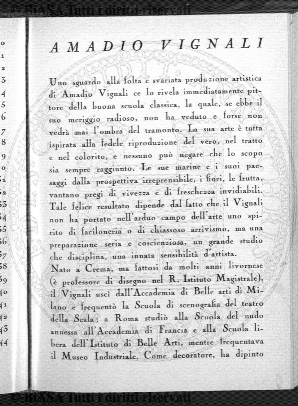 © BIASA Tutti i diritti riservati
AMADIO VIGNALI
Uno sguardo alla folta e svariata produzione artistica
di Amadio Vignali ce lo rivela immediatamente pit-
tore della buona scuola classica, la quale, se ebbe il
suo meriggio radioso, non ha veduto e forse non
vedrà mai l'ombra del tramonto. La sua arte è tutta
ispirata alla fedele riproduzione del vero, nel tratto
e nel colorito, e nessuno può negare che lo scopo
sia sempre raggiunto. Le sue marine e i suoi pae-
saggi dalla prospettiva irreprensibile, i fiori, le frutta,
vantano pregi di vivezza e di freschezza invidiabili.
Tale felice resultato dipende dal fatto che il Vignali
non ha portato nell'arduo campo dell'arte uno spi-
rito di faciloneria o di chiassoso arrivismo, ma una
preparazione seria e coscienziosa, un grande studio
che disciplina, una innata sensibilità d'artista.
Nato a Crema, ma fattosi da molti anni livornese
(è professore di disegno nel R. Istituto Magistrale),
il Vignali uscì dall'Accademia di Belle arti di Mi-
lano e frequentò la Scuola di scenografia del teatro
della Scala; a Roma studiò alla Scuola del nudo
annessa all'Accademia di Francia e alla Scuola li-
bera dell'Istituto di Belle Arti, mentre frequentava
il Museo Industriale. Come decoratore, ha dipinto
© BIASA Tutti i diritti riservati